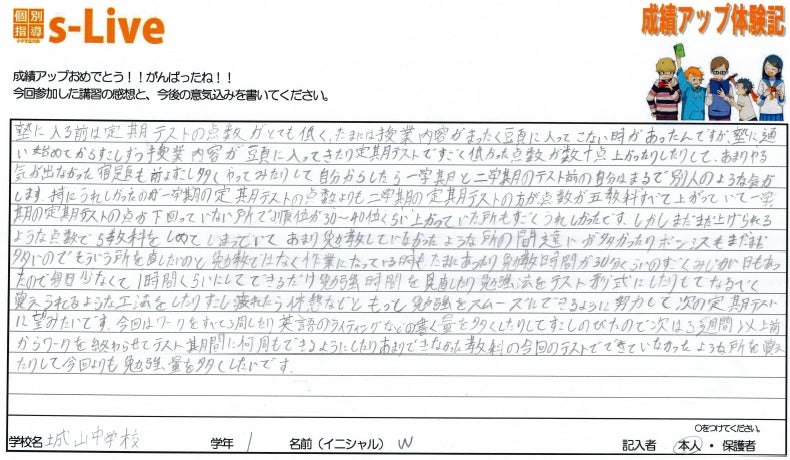 個別指導 s-Live
成績アップ体験記
成績アップおめでとう！！がんばったね！！
今回参加した講習の感想と、今後の意気込みを書いてください。
塾に入る前は定期テストの点数がとても低く、たまには授業内容がまったく頭に入ってこない時があったんですが、塾に通
い始めてからすこしずつ授業内容が頭に入ってきたり定期テストですごく低かった点数が数十点上がったりしたりして、あまりやる
気が出なかった宿題も前よずし多くやってみたりして自分からしたら一学期と二学期のテスト前の自分はまるで別人のような気が
します。特にうれしかったのが一学期の定期テストの点数よりも二学期の定期テストの方が点数が五教科すべて上がっていて一学
期の定期テストの点が下回っていない所で順位が30～40位くらい上がっていた所もすごくうれしかったです。しかしまだまだ上げられる
ような点数で5教科をしめてしまっていて、あまり勉強していなかったような所の間違いが多かったりポンミスもまだまだ
多いのでそういう所を直したいのと勉強ではなく作業になっている時もたまにあったり勉強時間が30分くらいのすごくみじかい日もあっ
たので毎日少なくて1時間くらいにしてできるだけ勉強時間を見直したり勉強法をテスト形式にしたりしてなるべく
覚えられるような工法をしたりすし疲れたら休憩などともっと勉強をスムーズにできるように努力して次の定期テスト
に望みたいです。今回はワークをすべて3周したり英語のライティングなどの書く量を多くしたりしてすこしのびたので次は3週間以上前
からワークを終わらせてテスト期間に何周もできるようにしたりあまりできなかった教科の今回のテストでできていなかったような所を覚え
たりして今回よりも勉強量を多くしたいです。
〇をつけてください。
学校名 城山中学校 学年 1 名前（イニシャル） W 記入者 本人・保護者